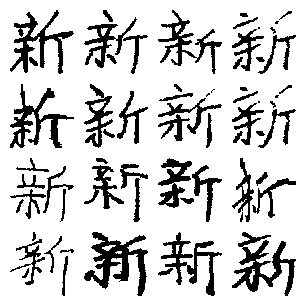 新新新新
新新新新
新新新新
新新新新